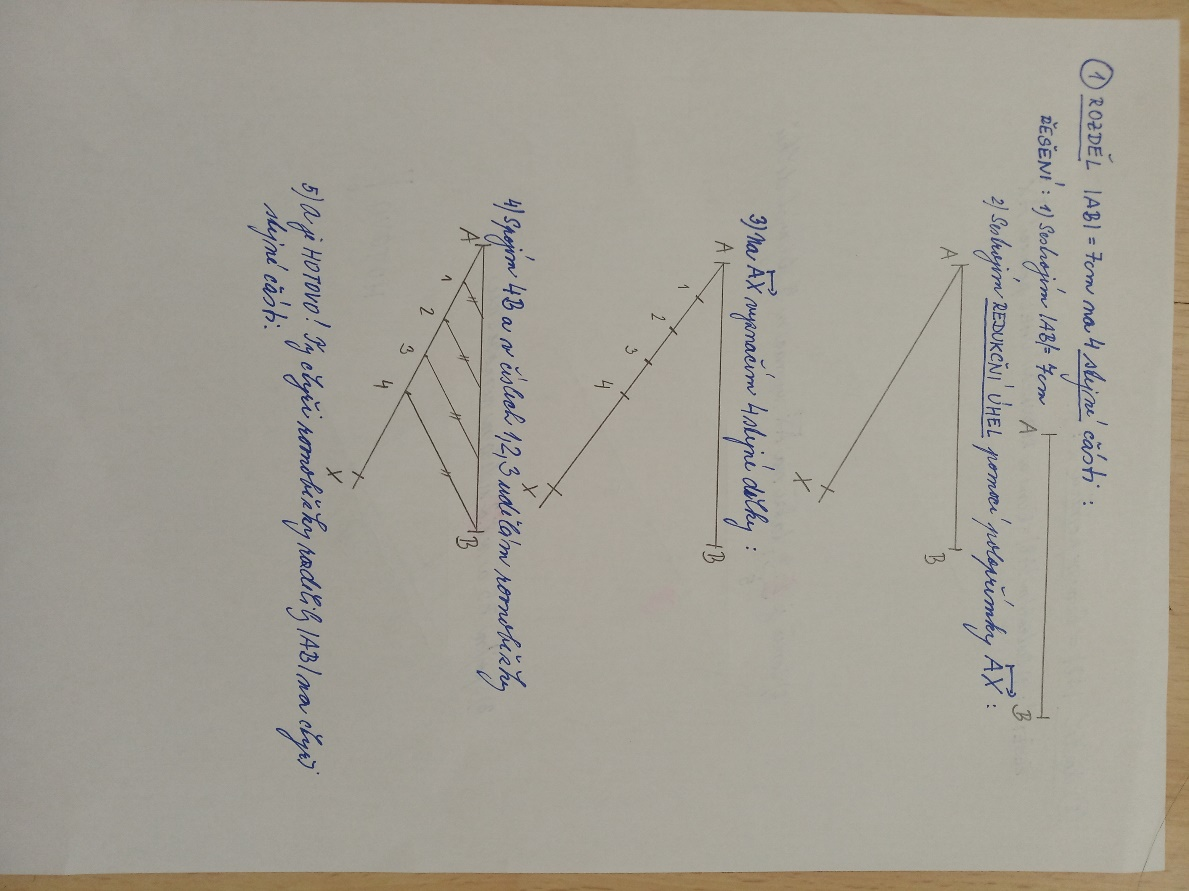 ① ROZDĚL |AB| = 7cm na 4 stejné části :
ŘEŠENÍ : 1) Sestrojím |AB| = 7cm
A B
2) Sestrojím REDUKČNÍ ÚHEL pomocí polopřímky AX :
A B
X
3) Na AX vyznačím 4 stejné dílky :
A B
1
2
3
4
X
4) Spojím 4B a v číslech 1,2,3 udělám rovnoběžky
A B
1
2
3
4
X
5) A je HOTOVO! Ty čtyři rovnoběžky rozdělily |AB| na čtyři
stejné části.